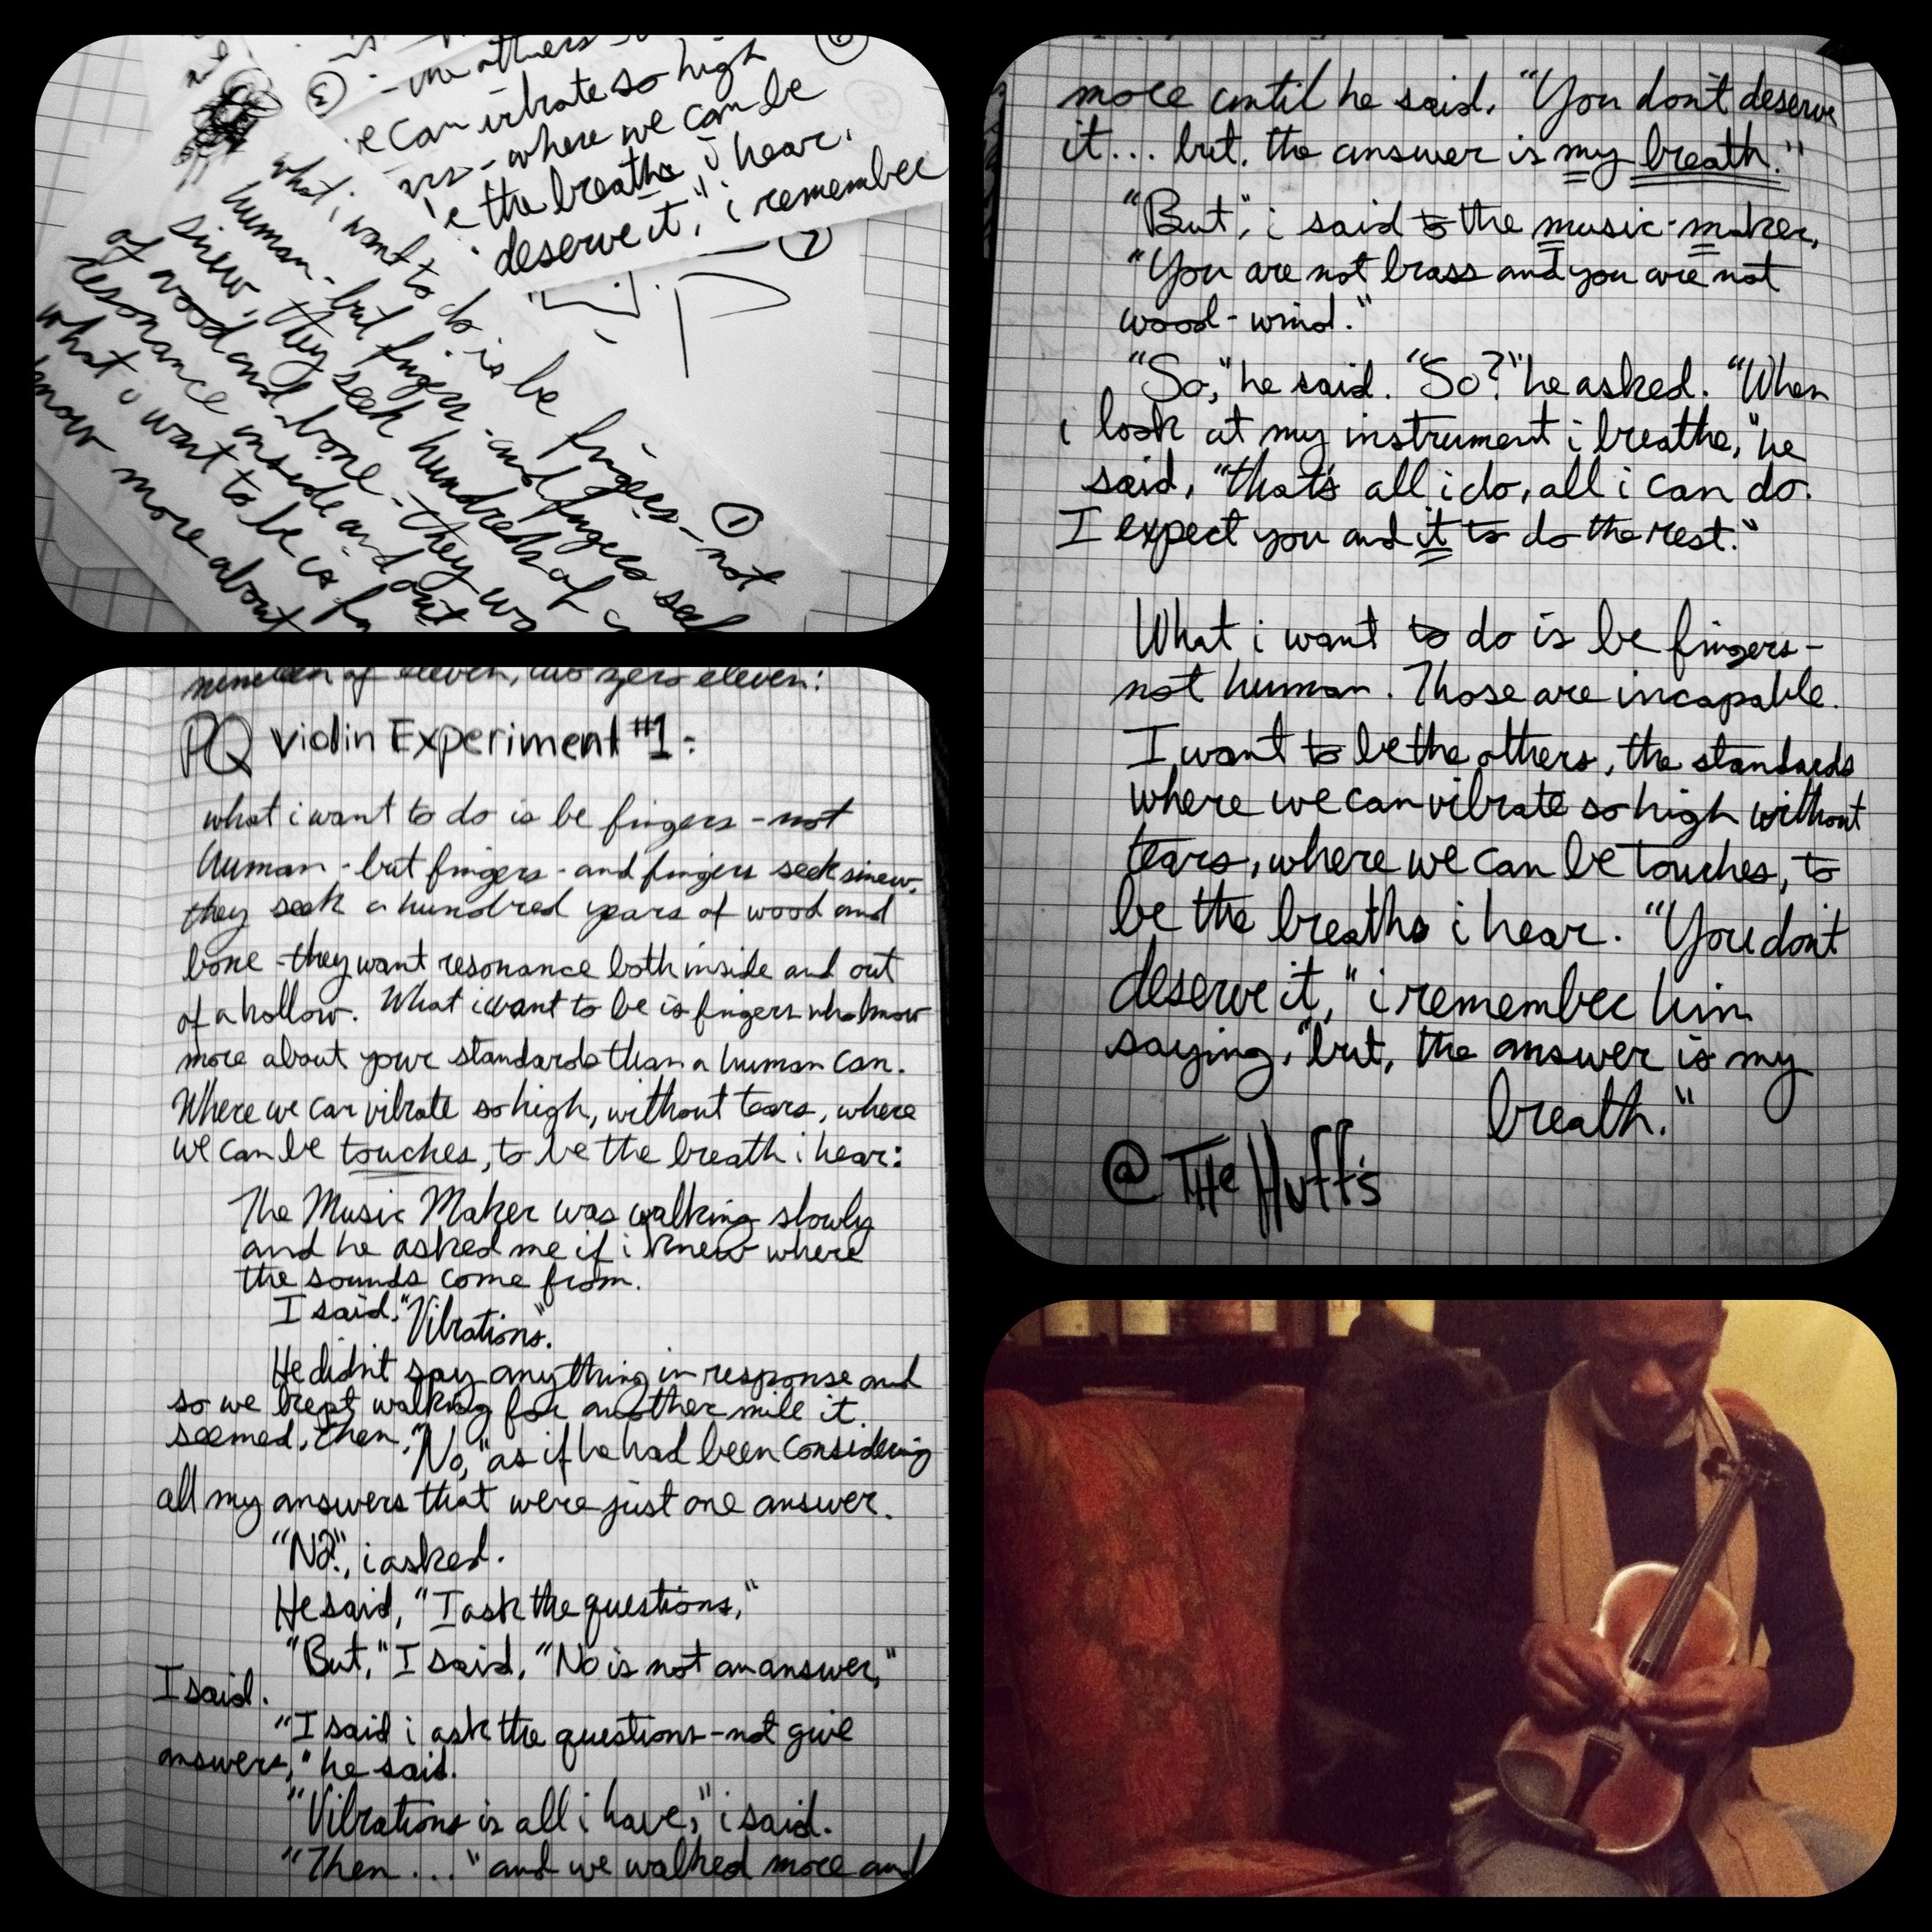 ③
- the others
e can vibrate so high
ars - where we can be
e the breaths i hear.
deserve it," i remember
⑦
①
what i want to do is be fingers - not
human - but fingers - and fingers seek
sinew, they seek hundreds of
of wood and bone - they wa
resonance inside and out
what i want to be is f
know more about
nineteen of eleven, two zero eleven:
PQ violin Experiment #1:
what i want to do is be fingers - not
human - but fingers - and fingers seek sinew,
they seek a hundred years of wood and
bone - they want resonance both inside and out
of a hollow. What i want to be is fingers who know
more about your standards than a human can.
Where we can vibrate so high, without tears, where
we can be touches, to be the breath i hear:
The Music Maker was walking slowly
and he asked me if i knew where
the sounds come from.
I said, "Vibrations."
He didn't say anything in response and
so we kept walking for another mile it
seemed, then, "No," as if he had been considering
all my answers that were just one answer.
"No?", i asked.
He said, "I ask the questions,"
"But," I said, "No is not an answer,"
I said.
"I said i ask the questions - not give
answers," he said.
"Vibrations is all i have," i said.
"Then..." and we walked more and
more until he said, "You don't deserve
it... but, the answer is my breath."
"But", i said to the music-maker,
"You are not brass and you are not
wood-wind."
"So," he said. "So?" he asked. "When
i look at my instrument i breathe," he
said, "that's all i do, all i can do.
I expect you and it to do the rest."
What i want to do is be fingers -
not human. Those are incapable.
I want to be the others, the standards
where we can vibrate so high without
tears, where we can be touches, to
be the breaths i hear. "You don't
deserve it," i remember him
saying, "but, the answer is my
breath."
@ THe Huff's